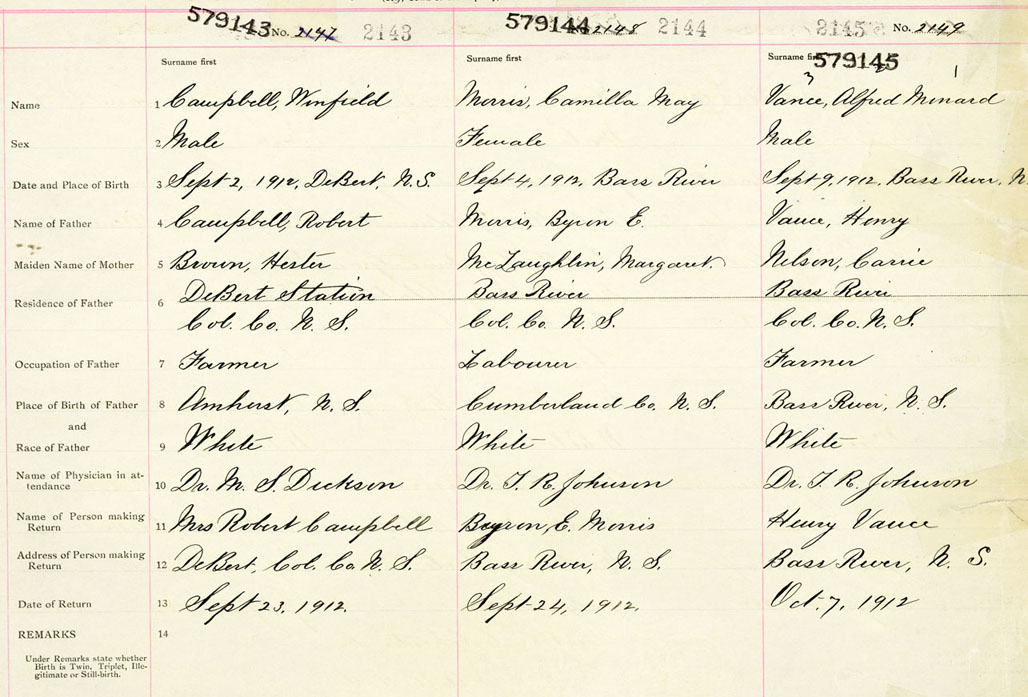 579143 No. 2147 2143 579144 2148 2144 2145 No. 2149
Surname first Surname first Surname first 579145
3 1
Name 1 Campbell, Winfield Morris, Camilla May Vance, Alfred Menard
Sex 2 Male Female Male
Date and Place of Birth 3 Sept 2, 1912, DeBert, N.S. Sept 4, 1912, Bass River Sept 9, 1912, Bass River, N.
Name of Father 4 Campbell, Robert Morris, Byron E. Vance, Henry
Maiden Name of Mother 5 Brown, Hester McLaughlin, Margaret. Nelson, Carrie
Residence of Father 6 DeBert Station Bass River Bass River
Col. Co. N. S. Col. Co. N. S. Col. Co. N. S.
Occupation of Father 7 Farmer Labourer Farmer
Place of Birth of Father 8 Amherst, N. S. Cumberland Co. N. S. Bass River, N. S.
and
Race of Father 9 White White White
Name of Physician in at-
tendance 10 Dr. M. S. Dickson Dr. T. R. Johnson Dr. T. R. Johnson
Name of Person making
Return 11 Mrs Robert Campbell Byron, E. Morris Henry Vance
Address of Person making
Return 12 DeBert, Col. Co. N. S. Bass River, N. S. Bass River, N. S.
Date of Return 13 Sept 23, 1912. Sept 24, 1912. Oct. 7, 1912
REMARKS 14
Under Remarks state whether
Birth is Twin, Triplet, Ille-
gitimate or Still-birth.